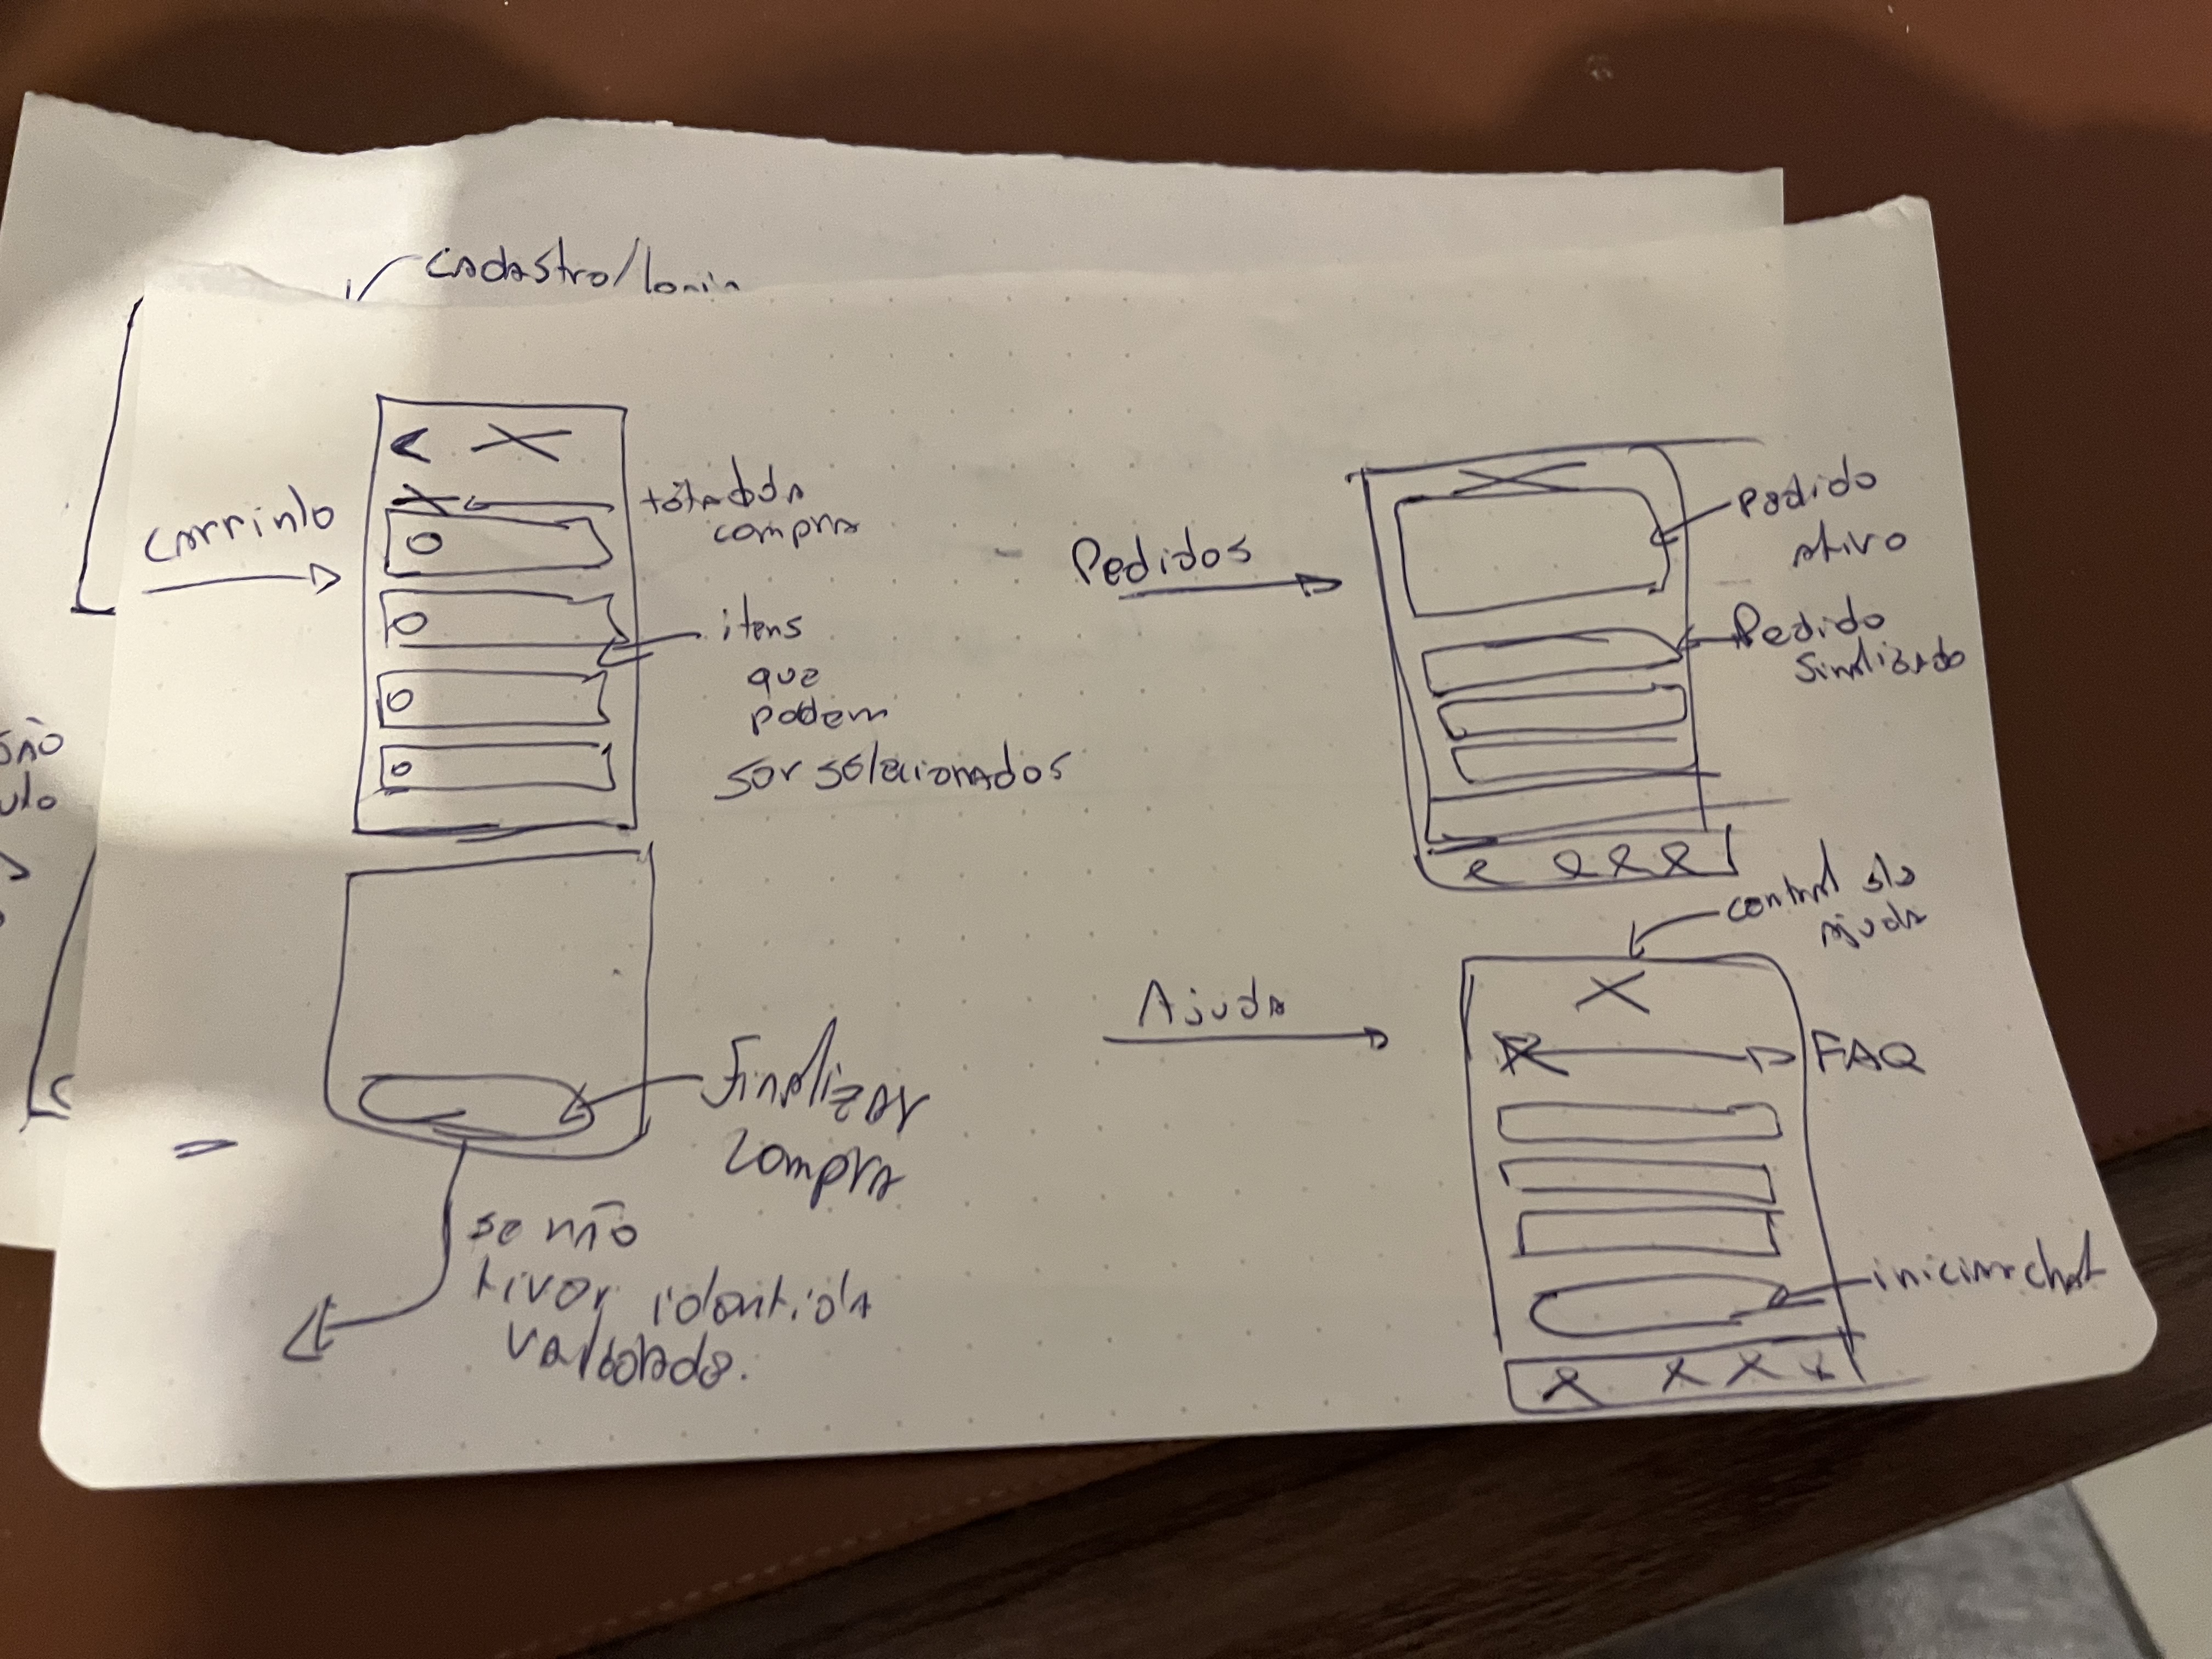 cadastro/login
carrinho
total da
compra
itens
que
podem
ser selecionados
Finalizar
compra
se não
tiver identida
validada.
Pedidos
pedido
ativo
Pedido
finalizado
Ajuda
central de
ajuda
FAQ
iniciar chat
não